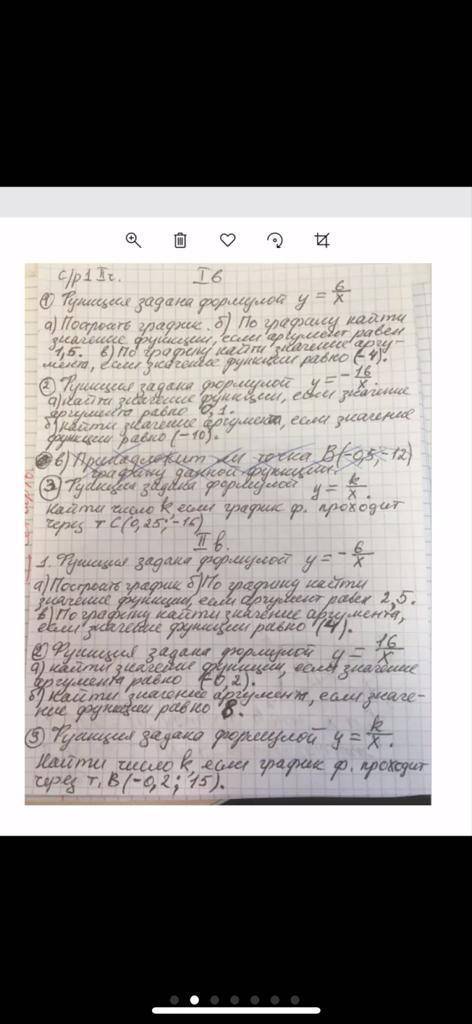 с/р 1 II ч. I в
① Функция задана формулой y = 6/x
а) Построить график. б) По графику найти
значение функции, если аргумент равен
1,5. в) По графику найти значение аргу-
мента, если значение функции равно (-4).
② Функция задана формулой y = -16/x.
а) найти значение функции, если значение
аргумента равно 0,1.
б) найти значение аргумента, если значение
функции равно (-10).
в) Принадлежит ли точка В(-0,5; -12)
графику данной функции.
③ Функция задана формулой y = k/x.
Найти число k, если график ф. проходит
через т С(0,25; -16)
II в.
1. Функция задана формулой y = -6/x
а) Построить график б) По графику найти
значение функции, если аргумент равен 2,5.
в) По графику найти значение аргумента,
если значение функции равно (4).
② Функция задана формулой y = 16/x
а) найти значение функции, если значение
аргумента равно (-0,2).
б) Найти значение аргумента, если значе-
ние функции равно 8.
③ Функция задана формулой y = k/x.
Найти число k, если график ф. проходит
через т. В(-0,2; 15).